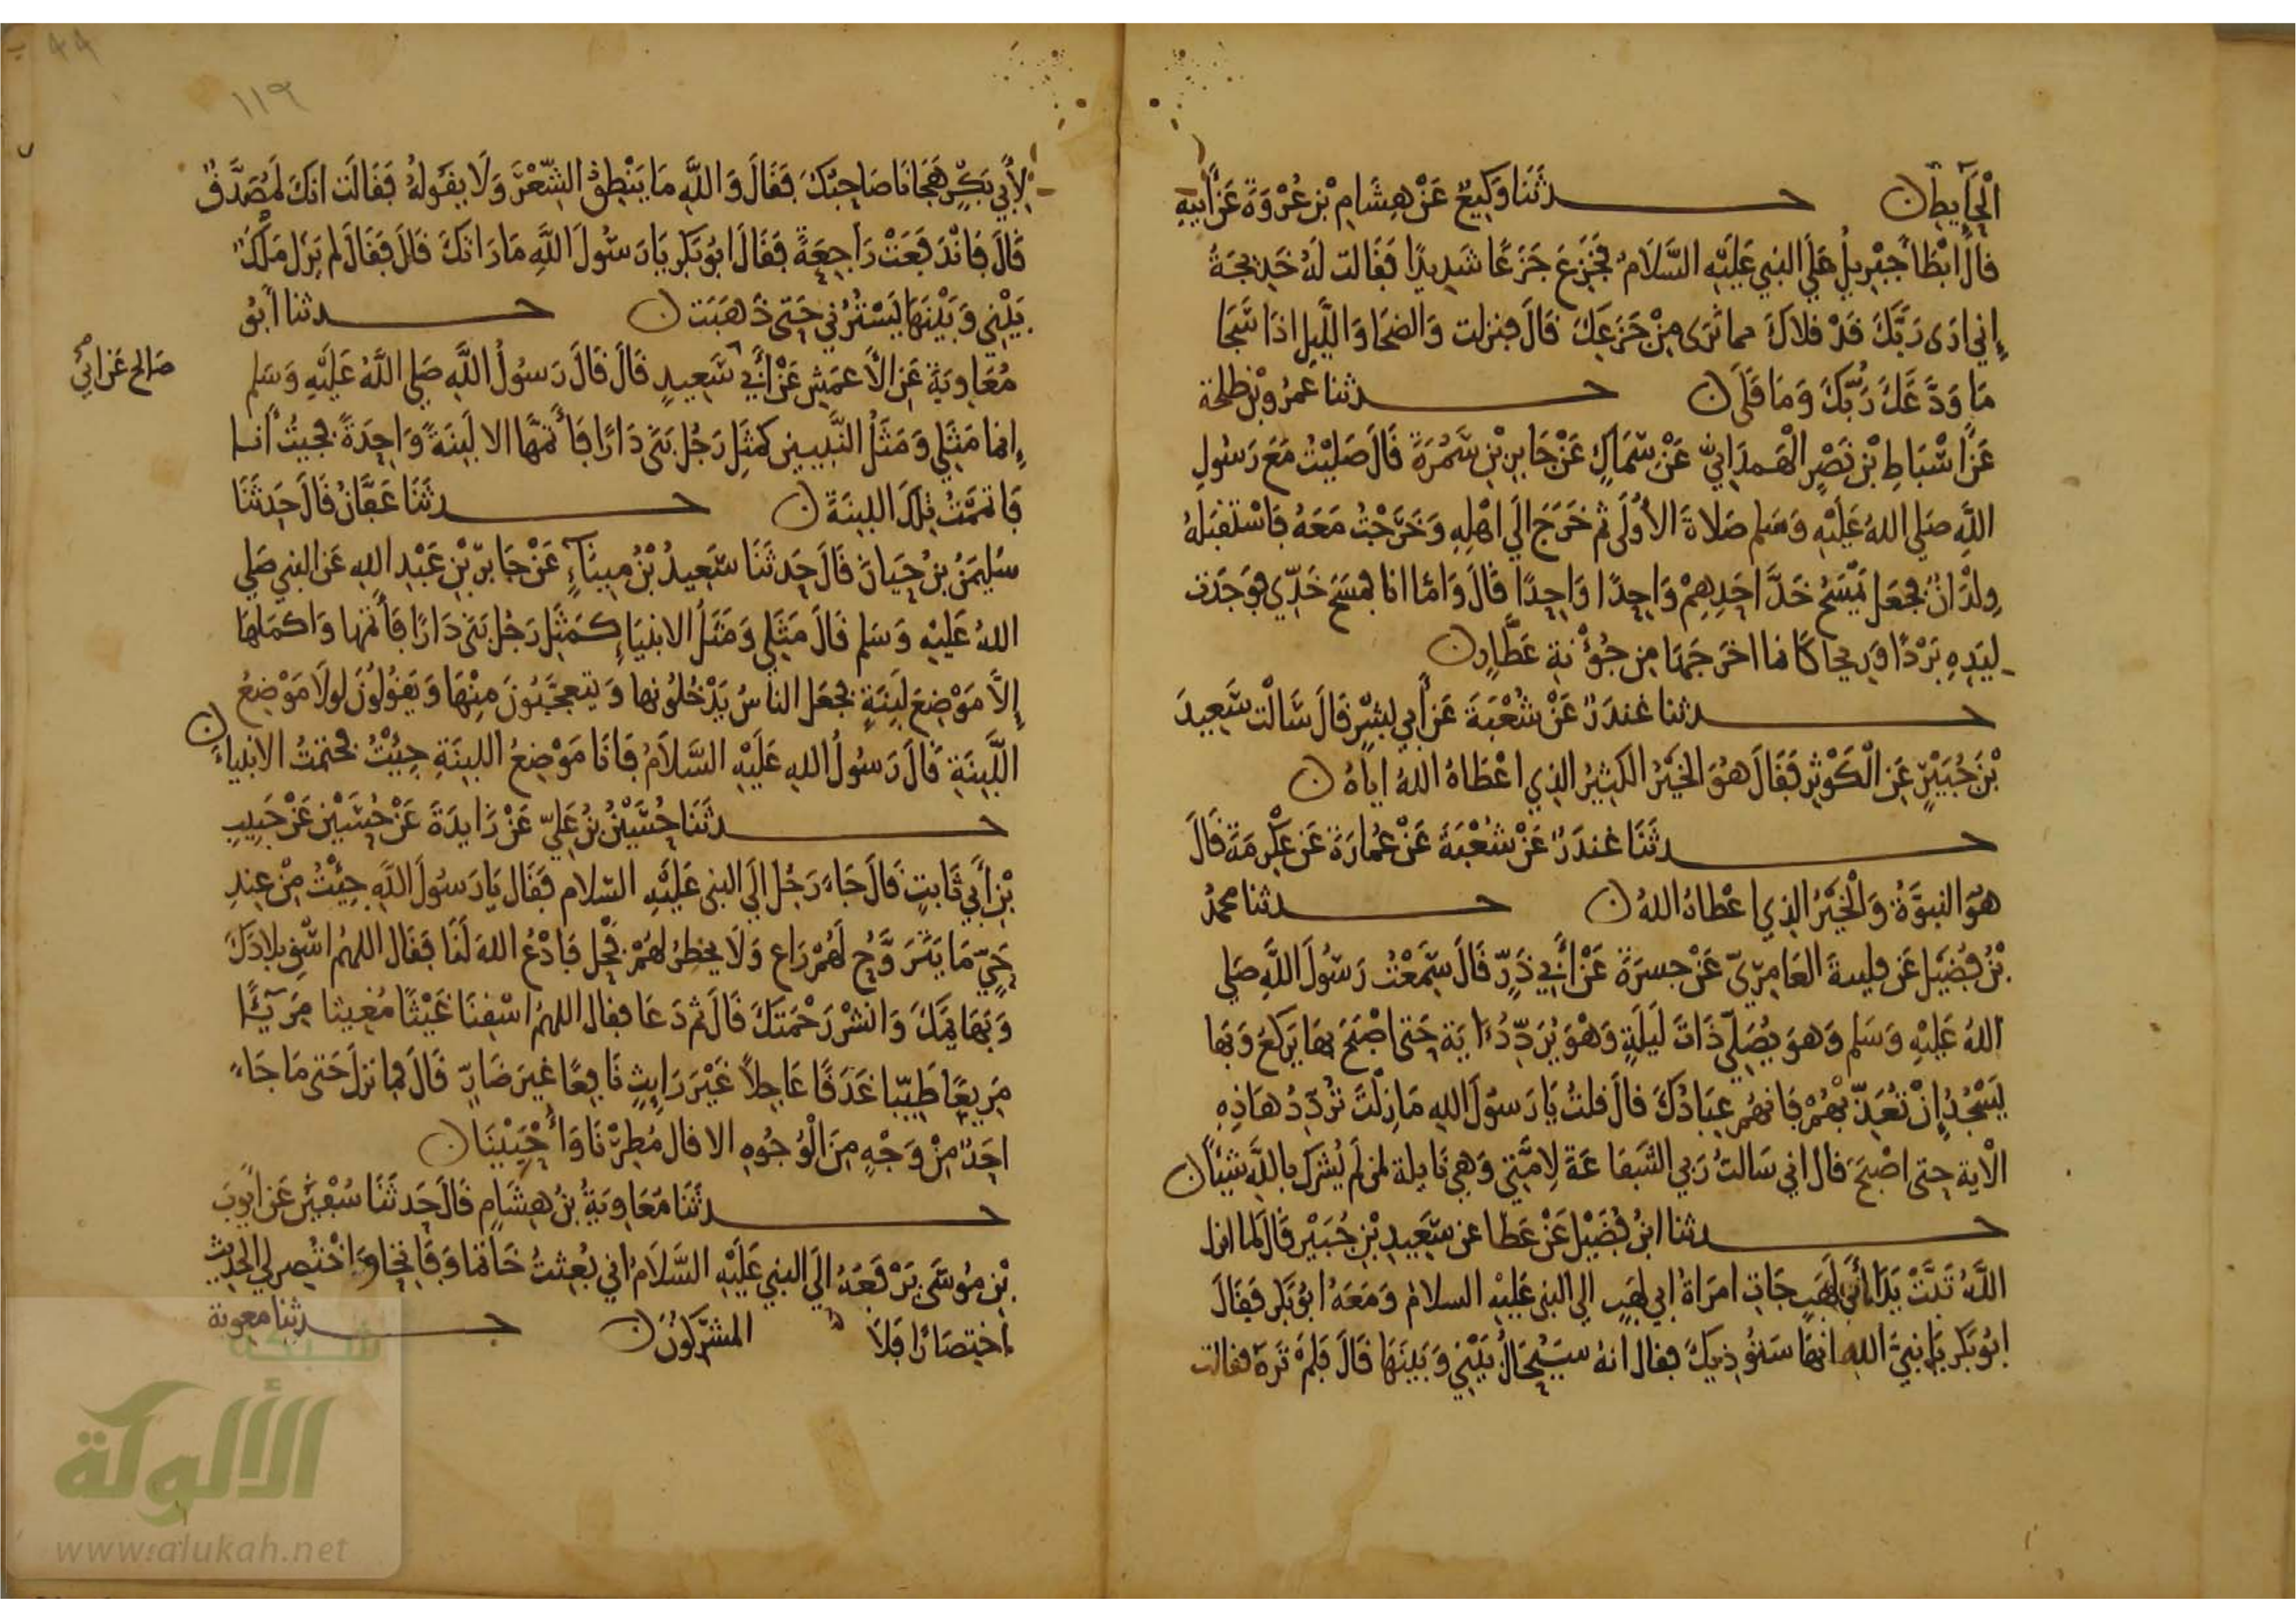 الْحَايِطِ ن حدثَنَا وَكِيعٌ عَنْ هِشَامِ بْنِ عُرْوَةَ عَنْ أَبِيهِ
قالَ ابْطَأ جِبْرِيلُ عَلَى النبي عَلَيْهِ السَّلَامُ فجَزِعَ جَزَعًا شَدِيدًا فَقَالت لَهُ خَدِيجَةُ
إِني ارَى رَبَّكَ قَدْ قلاكَ مما ترَى مِنْ جَزَعِكَ قالَ فنزلت وَالضحَا وَاللَّيلِ اذَا سَجَا
مَا وَدَّعَكَ رَبُّكَ وَمَا قَلَى ن حدثنا عَمْرُو بْن طلحة
عَنْ اسْبَاطِ بْنِ نَصْرٍ الْهَمدَانِيّ عَنْ سِمَاكٍ عَنْ جَابِرِ بْنِ سَمُرَةَ قَالَ صَلَّيْتُ مَعَ رَسُولِ
اللَّهِ صَلى اللهُ عَلَيْهِ وَسَلم صَلاةَ الأُولَى ثم خَرَجَ الَى اهْلِهِ وَخَرَجْتُ مَعَهُ فَاسْتقبَلهُ
وِلْدَانٌ فجَعَل يَمْسَحُ خَدَّ احَدِهِمْ وَاحِدًا وَاحِدًا قَالَ وَامَّا انا فمسَحَ خَدِّي فوَجَدت
لِيَدِهِ بَرْدًا وَرِيحا كَانما اخرَجَهَا مِن جُؤْنَةِ عَطَّارٍ ن
حدثنا غندَرٌ عَنْ شُعْبَةَ عَن أَبي بشْرٍ قَالَ سَالْت سَعِيدَ
بْنَ جُبَيْرٍ عَنِ الْكَوْثرِ فَقَالَ هُوَ الخيْرُ الكثِيرُ الذِي اعْطَاهُ اللهُ ايَّاهُ ن
حدثَنَا غندَرٌ عَنْ شُعْبَةَ عَنْ عُمَارَةَ عَن عِكْرِمَةَ قَالَ
هُوَ النبوَّةُ وَالْخَيْرُ الذِي اعْطاهُ اللهُ ن حدثنا محمدُ
بْنُ فُضَيْلٍ عَن فليتَ العَامِرِيّ عَنْ جسرَةَ عَنْ أَبي ذَرٍّ قَالَ سَمِعْتُ رَسُولَ اللَّهِ صَلى
اللهُ عَلَيْهِ وَسَلم وَهوَ يُصَلِّي ذَاتَ لَيلَةٍ وَهْوَ يُرَدِّدُ ايَة حَتى اصْبَحَ بهَا يَركَعُ وَبهَا
يَسْجُدُ إِنْ تُعَذِّبْهُمْ فَانهُم عِبَادُكَ قالَ قلتُ يَا رَسُولَ اللهِ مَا زِلْتَ تُرَدِّدُ هَاذِهِ
الْاية حتى اصْبَحَ قالَ اني سَالتُ رَبي الشفَاعَةَ لِامَّتي وَهي نَايلة لمن لَم يُشرَك باللَّهِ شيْئًا ن
حدثنا ابنُ فُضَيْلٍ عَنْ عَطا عن سَعِيدِ بْنِ جُبَيْرٍ قَالَ لَما انزل
اللَّهُ تَبَّتْ يَدَا أَبِي لَهَبٍ جَات امرَاةُ ابي لهَبٍ الى النبي عَلَيْهِ السلامُ وَمَعَهُ ابُو بَكر فقَالَ
ابُو بَكر يَا نبيَّ اللهِ انهَا سَتُوذيكَ فقال انهُ سَيُحَالُ بَيْني وَبَينَهَا قَالَ فلمْ تَرهُ فقالت
لِأَبِي بَكْرٍ هَجَانَا صَاحِبُكَ فَقَالَ وَاللَّهِ مَا يَنْطِقُ الشِّعْرَ وَلَا يقولُهُ فَقَالَت انكَ لَمُصَدَّقٌ
قَالَ فَانْدَفَعَتْ رَاجِعَةً فقَالَ ابُو بَكر يَا رَسُولَ اللَّهِ مَا رَاتكَ قَالَ فقَالَ لم يَزَل مَلَكٌ
بَيْنِي وَبَيْنَهَا يَسْتُرُني حَتى ذَهَبَت ن حدثنا أَبُو
مُعَاوِيَةَ عَنِ الأَعمَشِ عَنْ أَبي سَعِيدٍ قَالَ قَالَ رَسُولُ اللَّهِ صَلى اللَّهُ عَلَيْهِ وَسَلم
صَالح عَن ابي
إِنما مَثَلِي وَمَثَلُ النَّبِيين كمثلِ رَجُل بَنَى دَارًا فَأَتمهَّا الا لَبِنَةً وَاحِدَةً فجيتُ أَنا
فَاتممْتُ تِلْكَ اللبِنَةَ ن حدثَنَا عَفَّانُ قَالَ حَدثَنَا
سُلَيمَنُ بنُ حَيانَ قَالَ حَدثَنَا سَعِيدُ بْنُ مِينَآءٍ عَنْ جَابِرِ بْنِ عَبْدِ اللهِ عَن النبي صَلى
اللهُ عَلَيْهِ وَسَلم قَالَ مَثَلِي وَمَثَلُ الانبيَاءِ كَمَثَلِ رَجُل بَنَى دَارًا فَأَتمهَا وَاكمَلهَا
إِلاَّ مَوْضِعَ لَبِنَةٍ فجَعَل الناسُ يَدْخُلُونهَا وَيتعجَّبُونَ مِنْهَا وَيَقولُونَ لولَا مَوْضِعُ
اللَّبِنَةِ قَالَ رَسُولُ اللهِ عَلَيْهِ السَّلَامُ فَانَا مَوْضِعُ اللبِنَةِ جِيْتُ فختمتُ الانبياءَ ن
حدثَنَا حُسَيْنُ بْنُ عَلِيّ عَنْ زَايدَةَ عَنْ حُصَيْنٍ عَنْ حَبِيبِ
بْنِ أَبي ثَابتٍ قَالَ جَاءَ رَجُل إِلَى النبي عَليْهِ السّلام فقَال يَا رَسُولَ اللَّهِ جِئْتُ مِنْ عِندِ
حَيٍّ مَا يَتَرَوَّحُ لَهُمْ رَاعٍ وَلَا يخطِرُ لهُمْ فَحْل فَادْعُ اللهَ لَنَا فقَال اللهُم اسْقِ بِلادَكَ
وَبَهَايمَكَ وَانْشُرْ رَحْمَتَكَ قَالَ ثم دَعَا فقال اللهُم اسْقِنَا غَيْثًا مُغِيثا مَرِيئًا
مَرِيعًا طَيِّبا غَدَقًا عَاجِلاً غَيْرَ رَايِثٍ نَافِعًا غيرَ ضَارٍّ قَالَ فما نزلَ حَتى مَا جَاءَ
احَدٌ مِنْ وَجْهٍ مِنَ الْوُجُوهِ الا قال مُطِرْنَا وَأُحْيِيْنَا ن
حدثَنَا مُعَاوِيَةُ بْنُ هِشَامٍ قَالَ حَدثَنَا سُفْيَن عَن ايُّوبَ
بْنِ مُوسَى يَرْفَعَهُ الَى النبي عَلَيْهِ السَّلَامُ اني بُعِثتُ خَاتما وَفَاتحا وَاخْتُصِر لي الحَدِيث
اختِصَارًا فلَا المشرِكُونَ ن حدثنا معوية